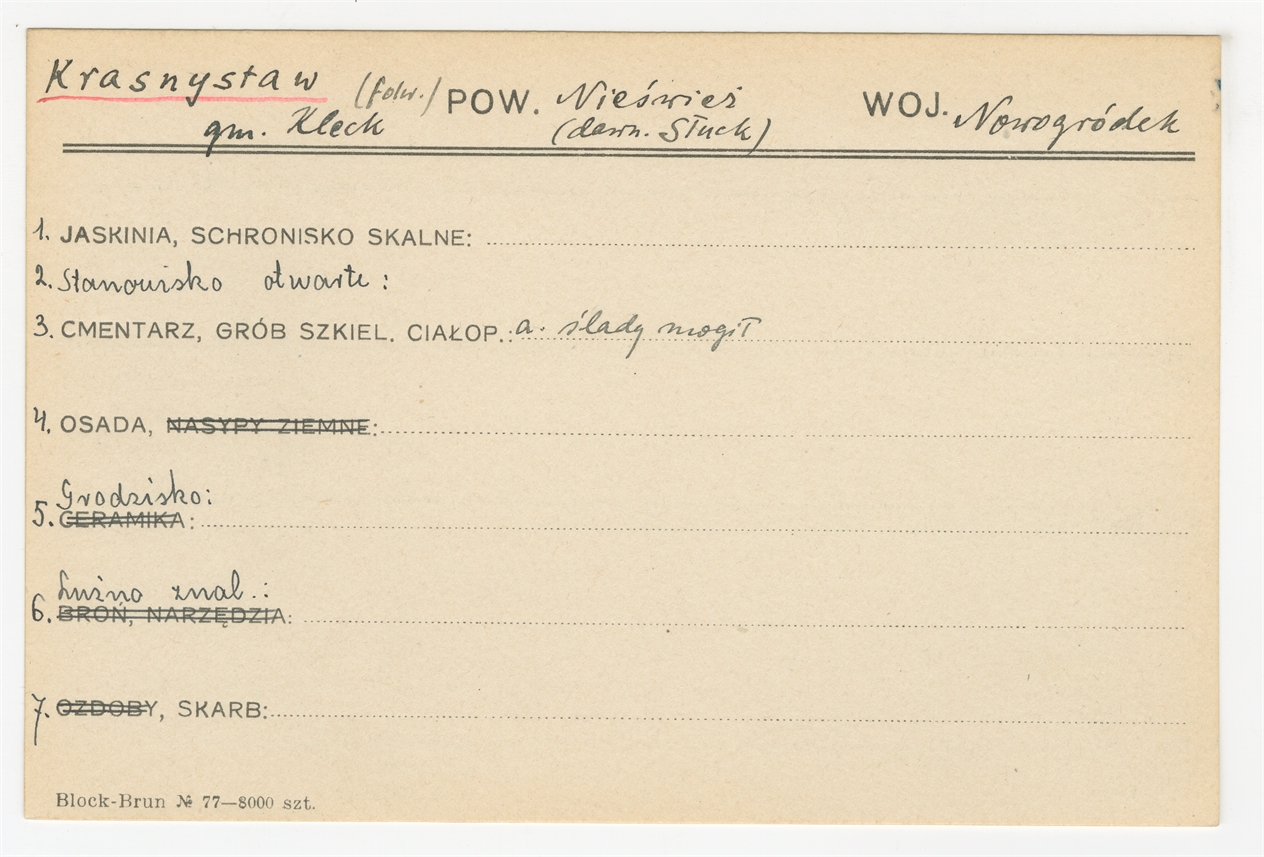 Krasnystaw (folw.) POW. Nieśwież WOJ. Nowogródek
gm. Kleck (dawn. Słuck)
1. JASKINIA, SCHRONISKO SKALNE:
2. Stanowisko otwarte:
3. CMENTARZ, GRÓB SZKIEL. CIAŁOP.: a. ślady mogił
4. OSADA, NASYPY ZIEMNE:
Grodzisko:
5. CERAMIKA:
Luźno znal.:
6. BROŃ, NARZĘDZIA:
7. OZDOBY, SKARB:
Block-Brun № 77—8000 szt.